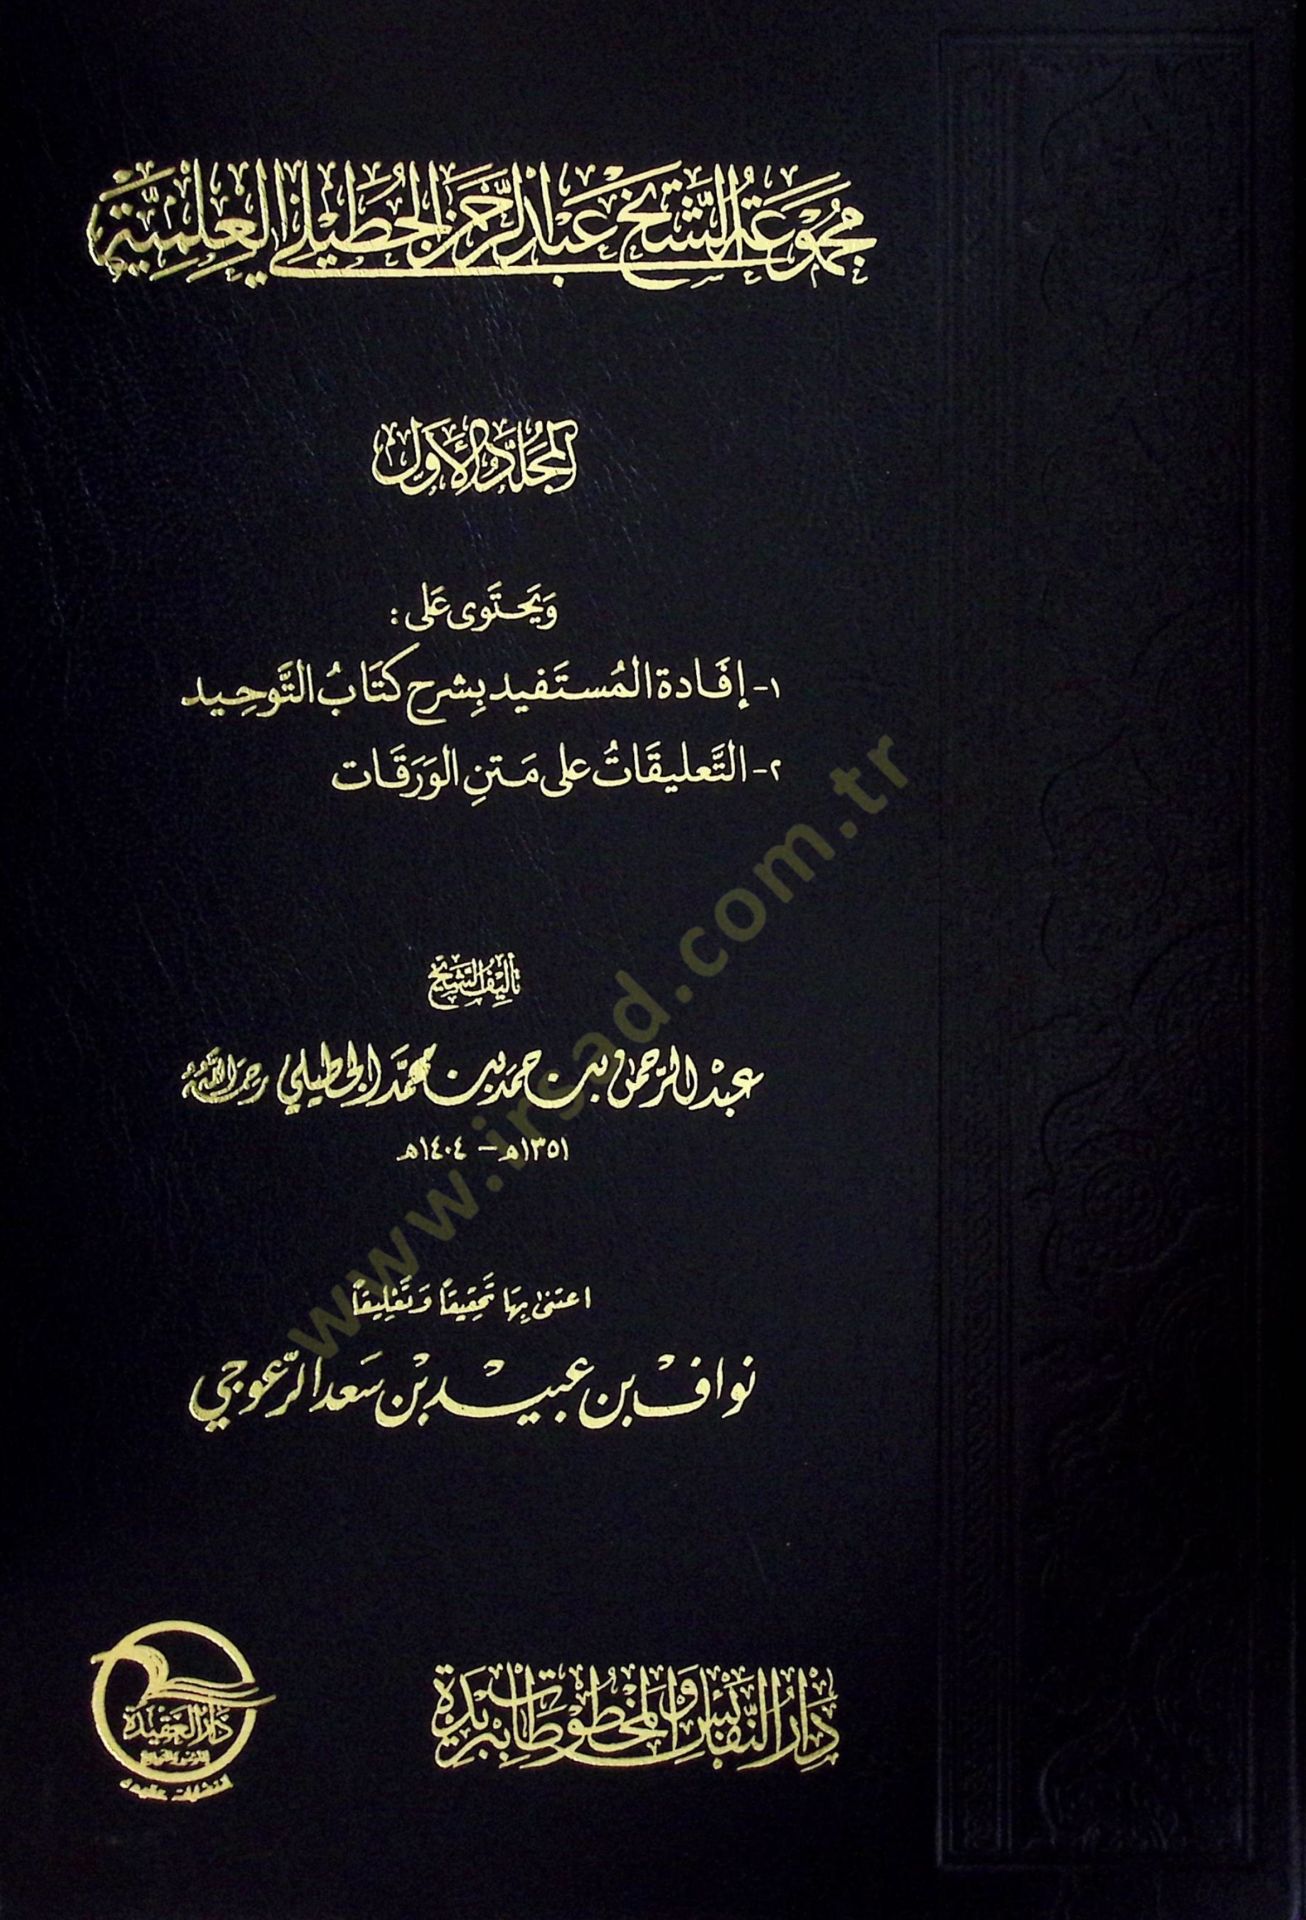 مجموعة الشيخ عبد الرحمن الجطيلي العلمية
المجلد الأول
ويحتوي على :
١- إفَادة المُستَفيد بِشرح كتَابُ التَّوحِيد
٢- التَّعليقَاتُ على مَتنِ الوَرَقَات
تأليف الشيخ
عبد الرحمن بن حمد بن محمد الجطيلي رحمه الله
١٣٥١هـ - ١٤٠٤هـ
اعتنى بها تحقيقاً وتعليقاً
نواف بن عبيد بن سعد الرعوجي
دار النفائس والمخطوطات ببريدة
دار العقيدة
للنشر والتوزيع
www.irsad.com.tr